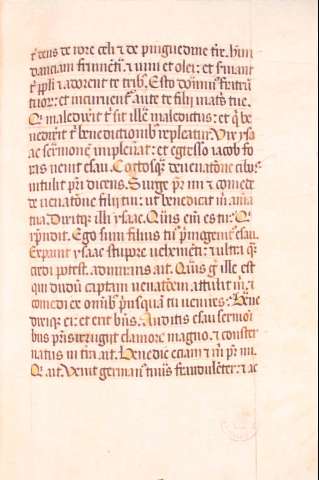 t̄ deus de rore celi & de pinguedine tr̄e. hūn
danciam frumēti. & uini et olei: et ſeruiant
t̄ pp̄li & adorent te trib;. Esto dom̄n⁹ fratrū
tuoꝝ: et incuruent᷑ ante te filii matꝭ tue.
Qⁱ maledixerit t̄ sit ille maledictus: et qⁱ be
nedixerit t̄ benedictionib; repleatur. Vix ysa
ac sermonē impleuat: et egresso iacob fo
ras uenit esau. Coctosq; de uenatōne cibos
intulit pr̄i dicens. Surge pr̄ mi & comede
de uenatōne filii tui: ut benedicat m̄ aīma
tua. Dixitq; illi ysaac. Qⁱs eīm es tu: Qⁱ
rn̄dit. Ego sum filius tu⁹ pⁱmogenit⁹ esau.
Expauit ysaac stupore uehemēti: & ultra qᵃ
credi potest. admirans ait. Qⁱs gͦ ille est
qui dudū captam uenatōem attulit m̄. &
comedi ex omīb; pⁱusquā tu uenires: Bene
dixiq; ei: et erit bn̄s. Auditis esau sermoī
bus pr̄is irrugiit clamore magno. & conster
natus in tr̄a ait. Benedic eciam & m̄ pr̄ mi.
Qⁱ ait. Venit german⁹ tuus fraudulēter: & ac